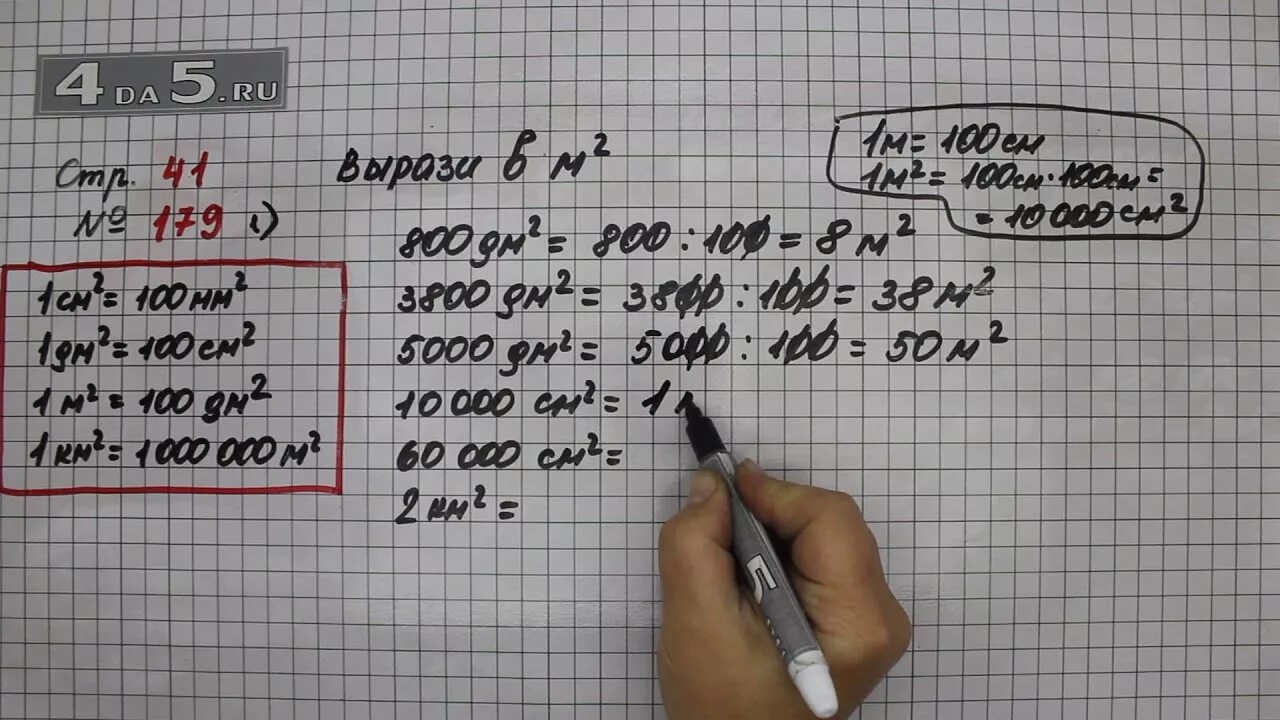 4DA5.RU
Стр. 41
№ 179 1)
Вырази в м²
1м = 100 см
1м² = 100см·100см =
= 10 000 см²
1 см² = 100 мм²
1 дм² = 100 см²
1 м² = 100 дм²
1 км² = 1000 000 м²
800 дм² = 800 : 100 = 8 м²
3800 дм² = 3800 : 100 = 38 м²
5000 дм² = 5000 : 100 = 50 м²
10 000 см² = 1
60 000 см² =
2 км² =
5